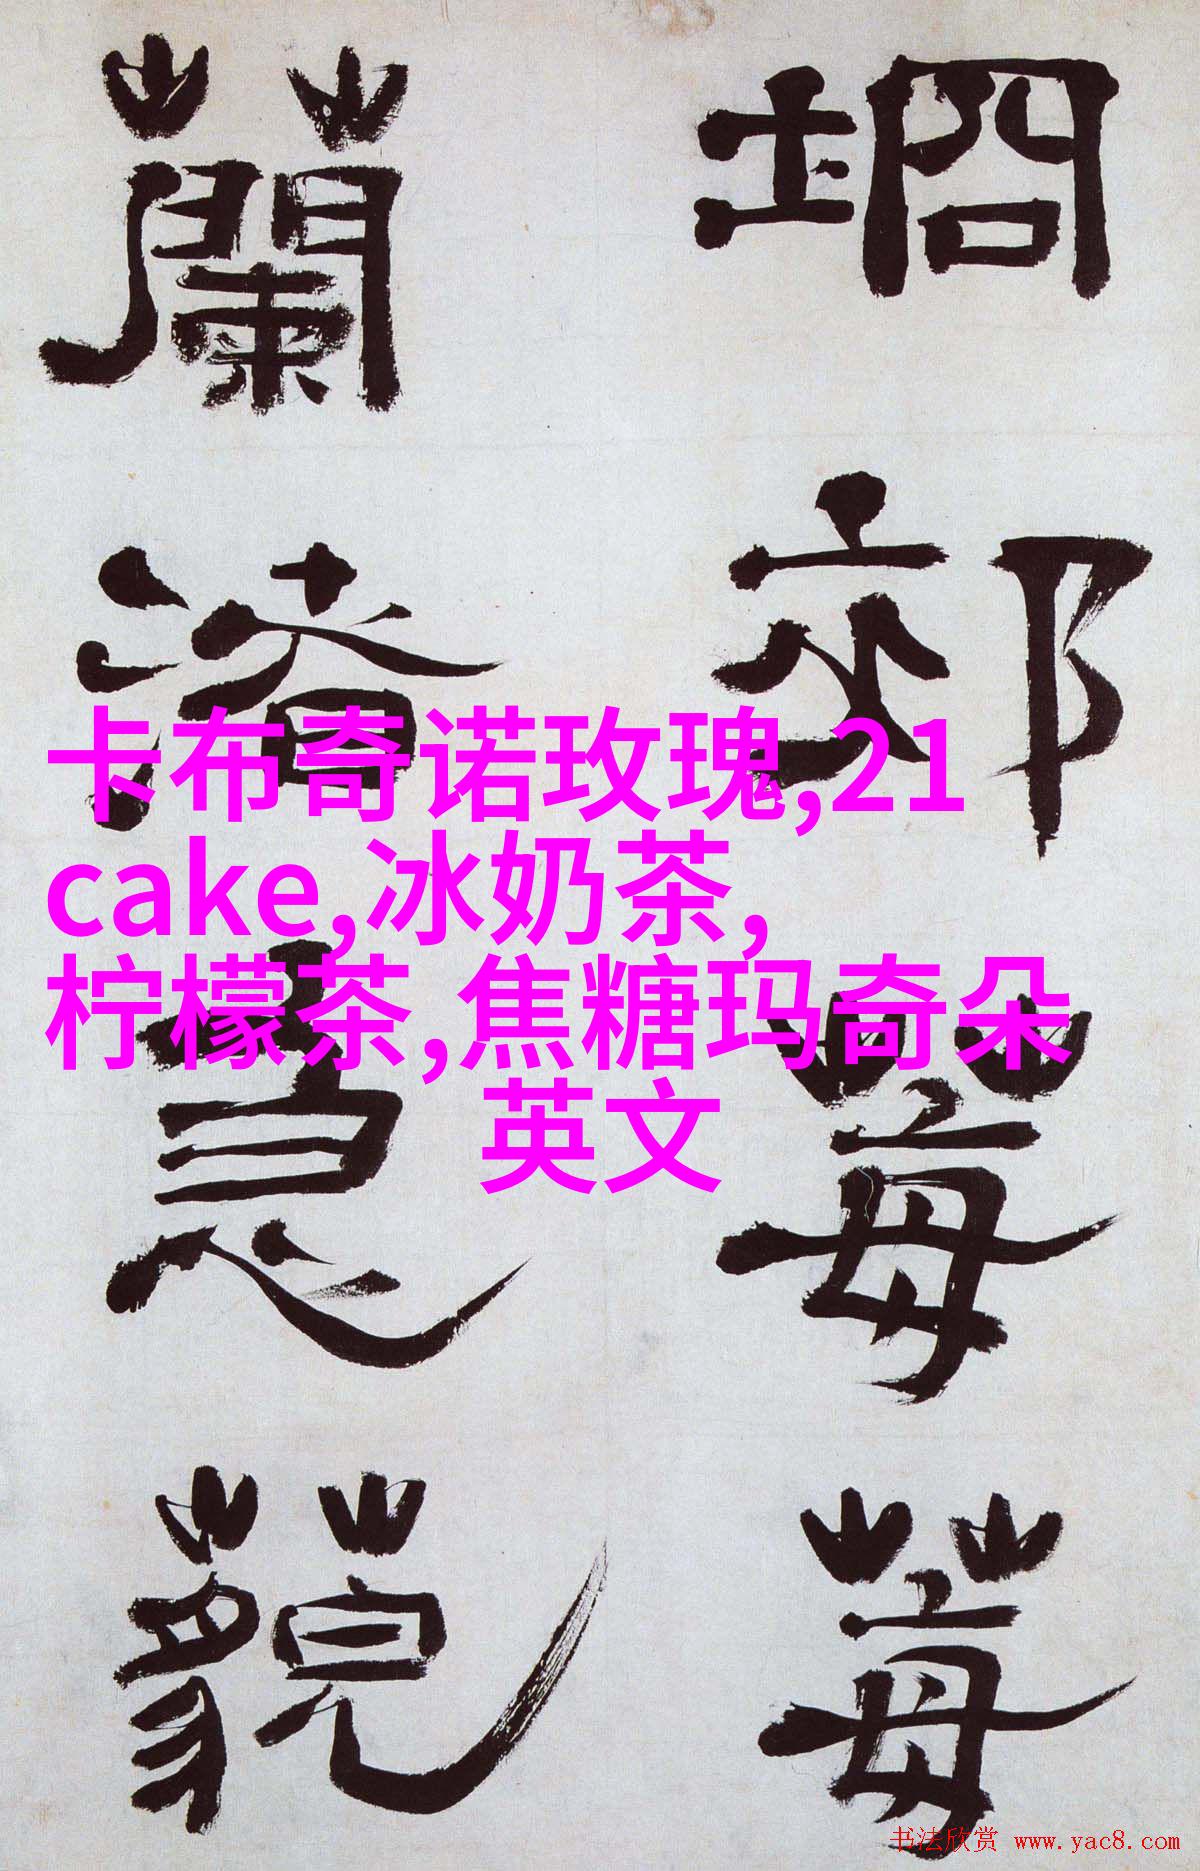 坰郊莓莓
蘭渚
藐
卡布奇诺玫瑰,21
cake,冰奶茶,
柠檬茶,焦糖玛奇朵
英文
书法欣赏 www.yac8.com